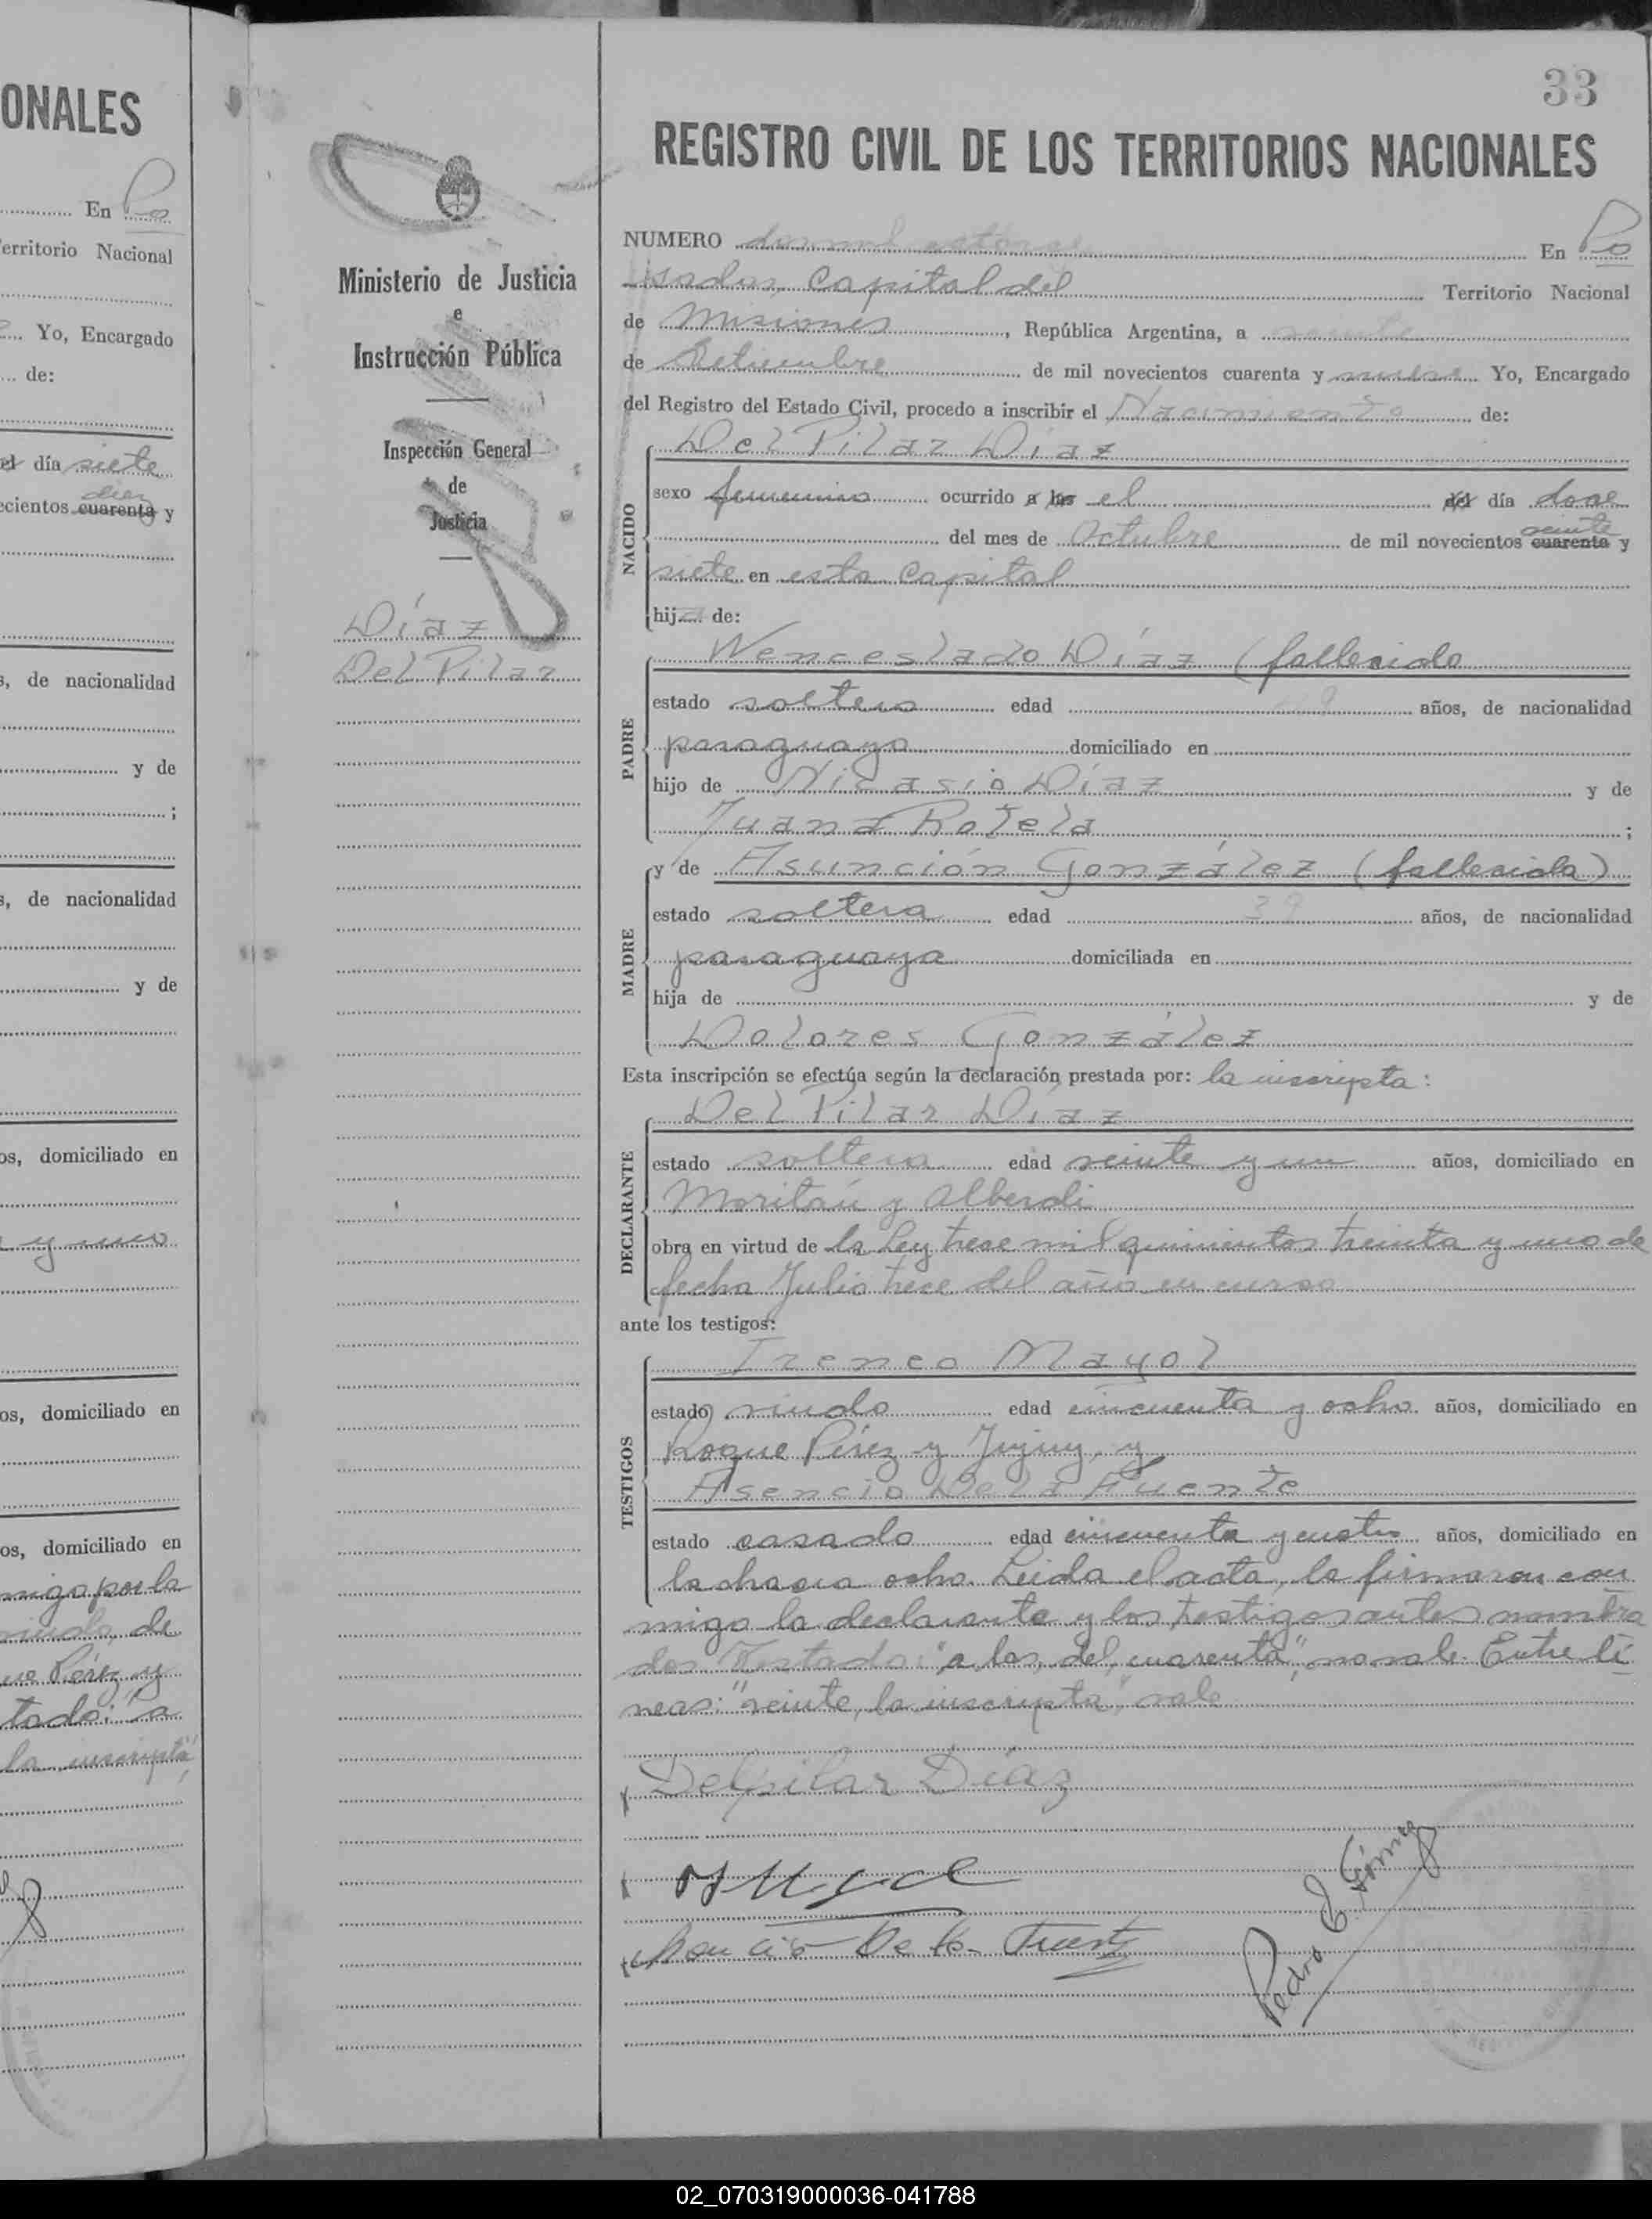 ONALES
En Po
erritorio Nacional
Yo, Encargado
de:
el día siete
diez
ecientos cuarenta y
s, de nacionalidad
y de
;
s, de nacionalidad
y de
os, domiciliado en
y uno
os, domiciliado en
os, domiciliado en
migo por la
viudo, de
ue Pérez y
tado: "a
la inscripta,
Ministerio de Justicia
e
Instrucción Pública
Inspección General
de
Justicia
Díaz
Del Pilar
33
REGISTRO CIVIL DE LOS TERRITORIOS NACIONALES
NUMERO dosmil catorce En Po
sadas, Capital del Territorio Nacional
de Misiones, República Argentina, a veinte
de Setiembre de mil novecientos cuarenta y nueve Yo, Encargado
del Registro del Estado Civil, procedo a inscribir el Nacimiento de:
NACIDO
Del Pilar Díaz
sexo femenino ocurrido a las el del día doce
veinte
del mes de Octubre de mil novecientos cuarenta y
siete en esta Capital
hija de:
PADRE
Wenceslado Díaz (fallecido
estado soltero edad años, de nacionalidad
paraguayo domiciliado en
hijo de Nicasio Díaz y de
Juana Rotela ;
MADRE
y de Asunción González (fallecida)
estado soltera edad 39 años, de nacionalidad
paraguaya domiciliada en
hija de y de
Dolores González
Esta inscripción se efectúa según la declaración prestada por: la inscripta:
DECLARANTE
Del Pilar Díaz
estado soltera edad veinte y un años, domiciliado en
Moritán y Alberdi
obra en virtud de la Ley trece mil quinientos treinta y uno de
fecha Julio trece del año en curso
ante los testigos:
TESTIGOS
Ireneo Mayol
estado viudo edad cincuenta y ocho años, domiciliado en
Roque Pérez y Jujuy, y
Asencio De La Fuente
estado casado edad cincuenta y cuatro años, domiciliado en
la chacra ocho. Leida el acta, la firmaron con
migo la declarante y los testigos antes nombra
dos. Testado: "a las, del, cuarenta", no vale. Entre lí
neas: "veinte, la inscripta", vale
Delpilar Díaz
De la Fuente
Pedro E. Gómez
02_070319000036-041788